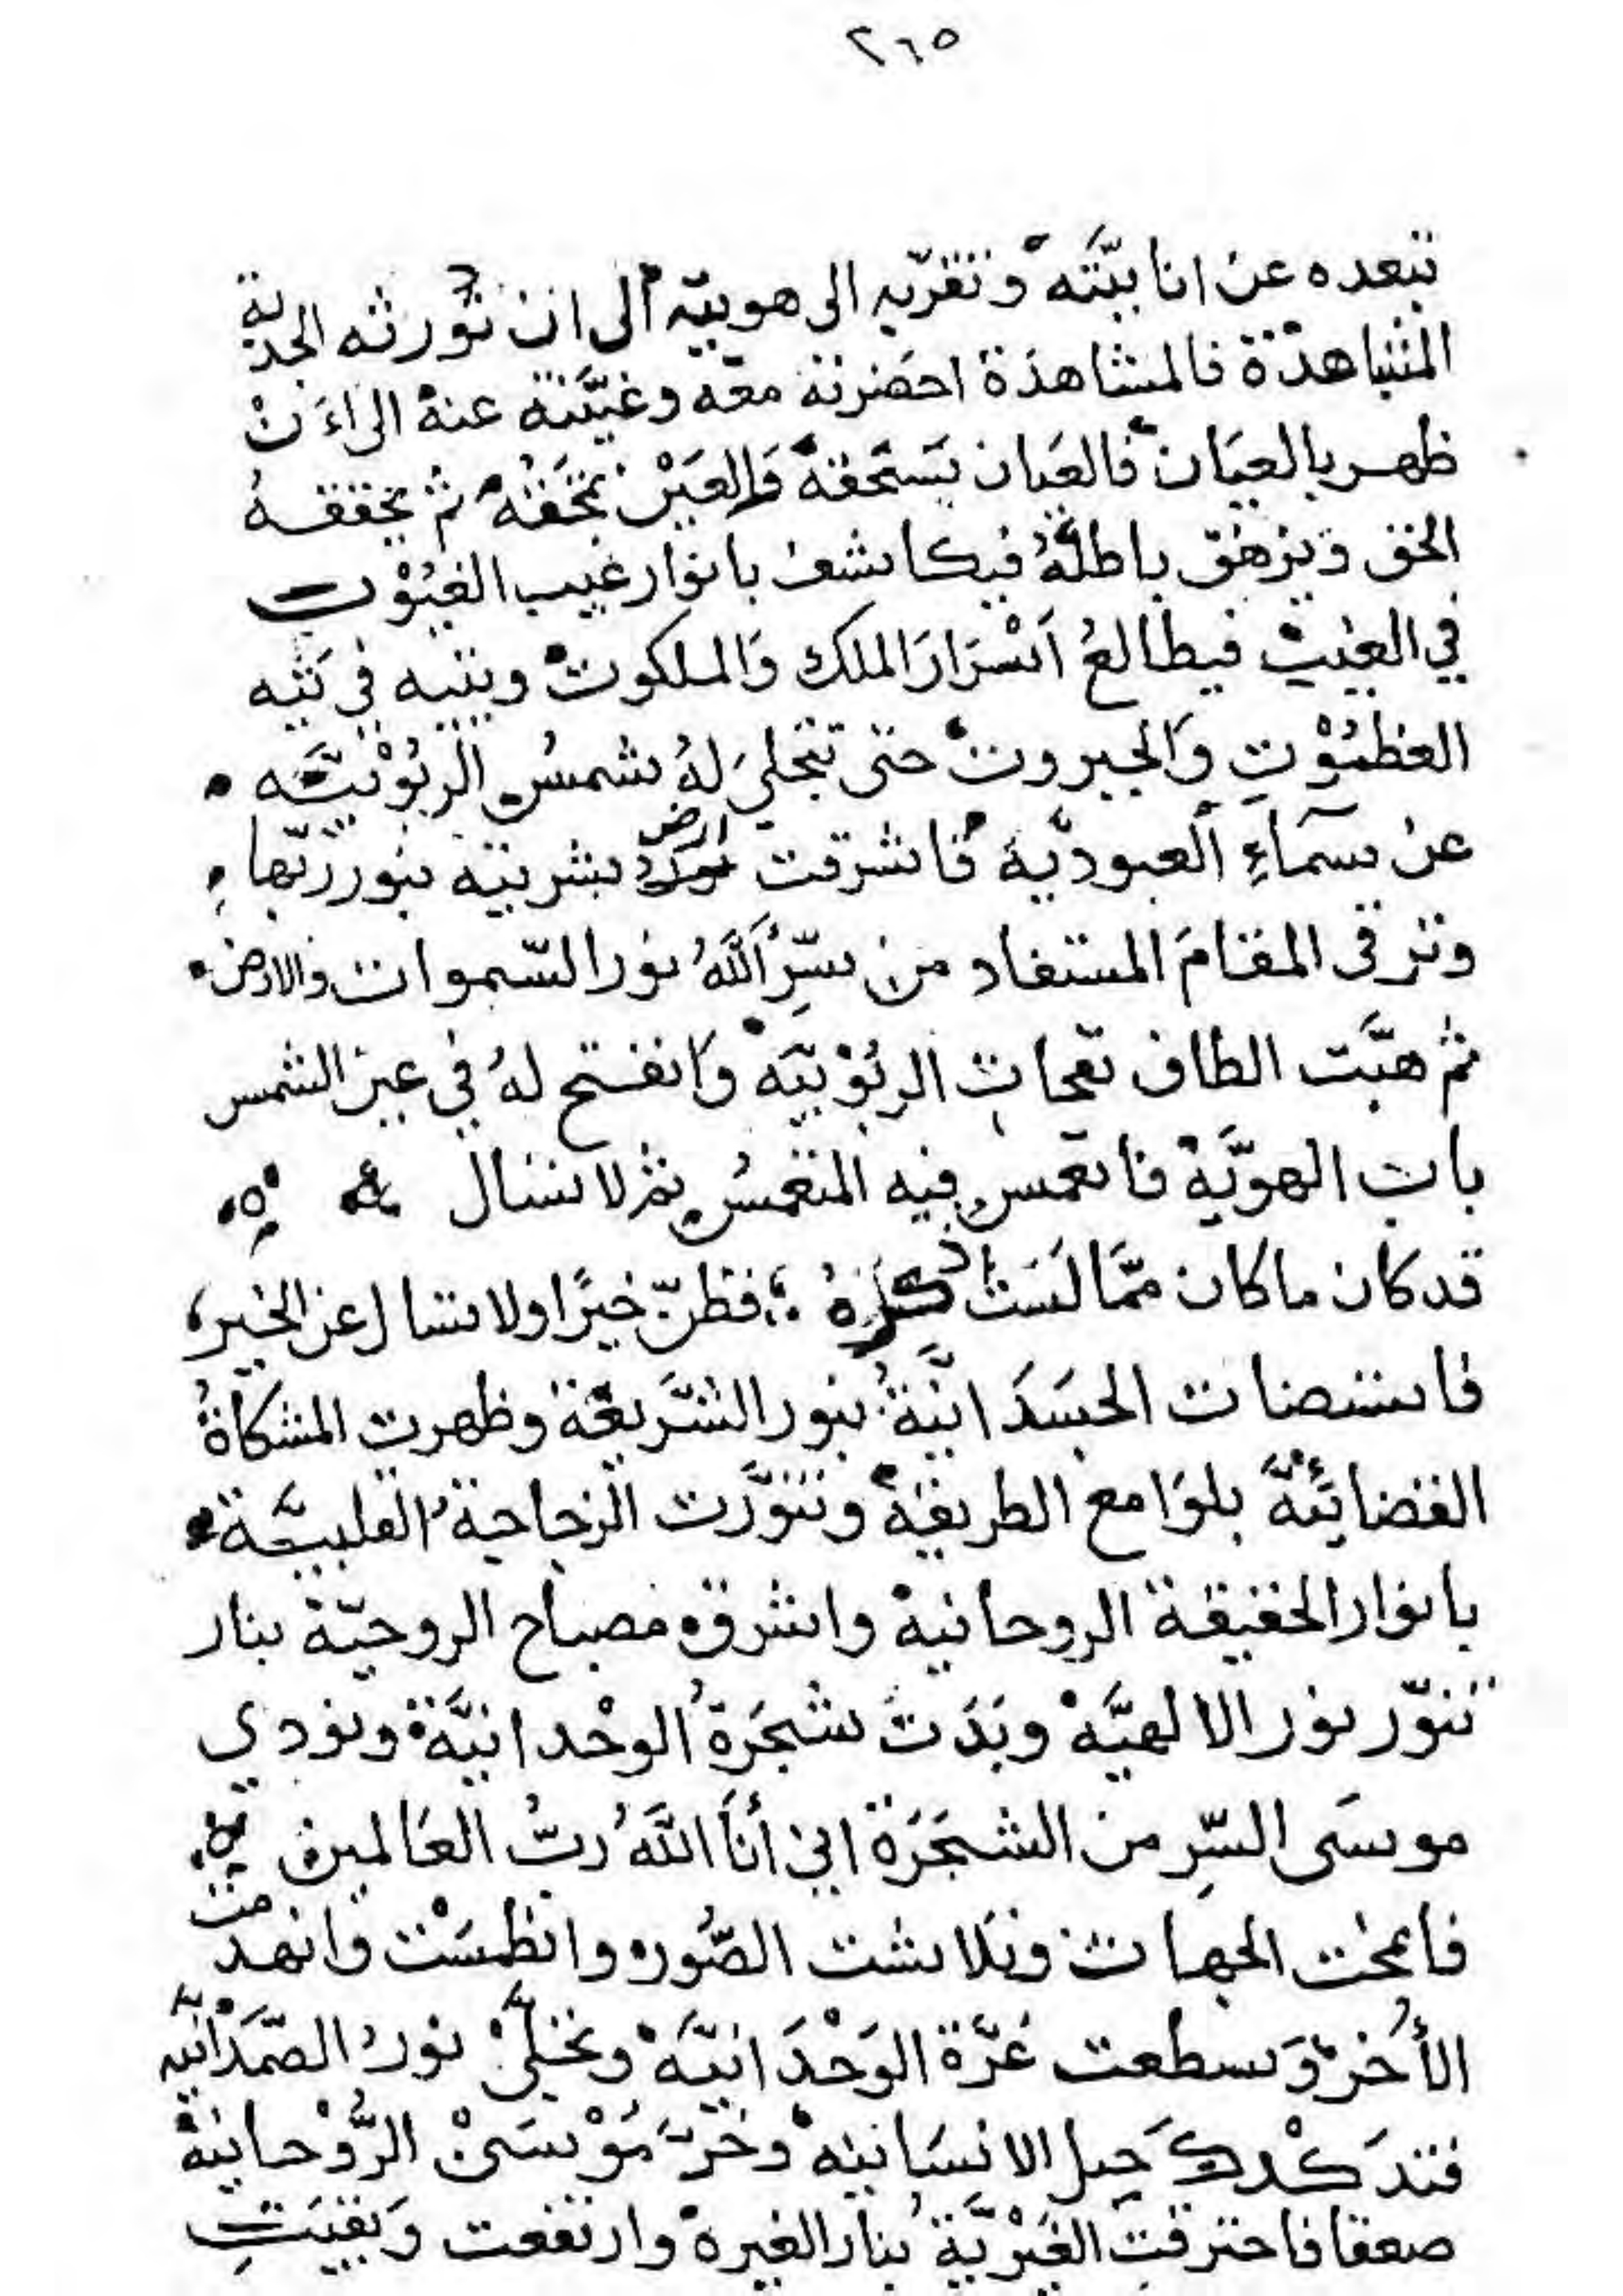 ٢٦٥
تبعده عن انانيّته وتقرّبه الى هويته الى ان تورثه الجذبة
المشاهدة فالمشاهدة احضرته معه وغيّبته عنه الى اءن
ظهر بالعيان فالعيان يسحقه والعين تمحقه ثم يحققه
الحق ويزهق باطله فيكاشف بانوار غيب الغيوب
في الغيب فيطالع اسرار الملك والملكوت ويتيه في تيه
العظموت والجبروت حتى تتجلى له شمس الربوبيّه
عن سماء العبوديّة فاشرقت ارض بشريته بنور ربّها
وترقى المقام المستفاد من سرّ الله نور السّموات والارض
ثم هبّت الطاف نفحات الربوبيّه وانفتح له في عين الشمس
باب الهويّة فانغمس فيه المنغمس ثم لا تسال
قد كان ما كان ممّا لست اذكره فظنّ خيرًا ولا تسال عن الخبر
فاستضات الجسدانيّة بنور الشّريعة وظهرت المشكاة
بلوامع الطريقة وتنوّرت الزجاجة القلبيّة
بانوار الحقيقة الروحانية واشرق مصباح الروحيّة بنار
تنوّر نور الالهيّه وبدت شجرة الوحدانيّة ونودي
موسى السّر من الشجرة اني أنا الله ربّ العالمين
فامحت الجهات وتلاشت الصّور وانطمست وانهدمت
الأخر وسطعت عزّة الوحدانيّه وتجلّى نور الصّمدانيه
فتدكدك جبل الانسانيه وخرّ موسى الرّوحانية
صعقا فاحترقت الغيريّة بنار الغيرة وارتفعت وبقيت